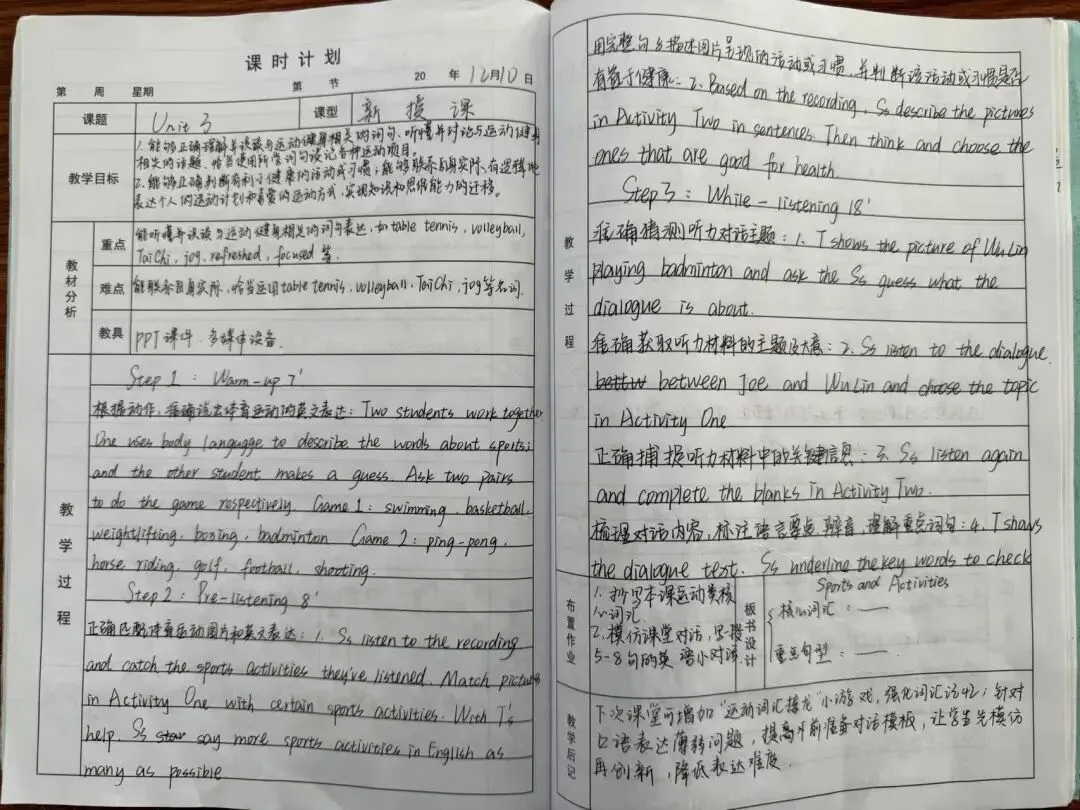 课时计划
第 周 星期 第 节 20 年 12月10日
课题 Unit 3 课型 新授课
教学目标
1. 能够正确理解并谈谈与运动健身相关的词句、听懂并讨论与运动健身
相关的话题、恰当使用所学词句谈论各种运动项目。
2. 能够正确判断有利于健康的活动或习惯；能够联系自身实际、有逻辑地
表达个人的运动计划和喜爱的运动方式，实现知识和思维能力的迁移。
教材分析
重点
能听懂并谈谈与运动健身相关的词句表达，如table tennis, volleyball,
Tai Chi, jog, refreshed, focused 等.
难点
能联系自身实际，恰当运用table tennis, volleyball, Tai Chi, jog等名词.
教具
PPT课件、多媒体设备.
教学过程
Step 1: Warm-up 7'
根据动作，准确说出体育运动的英文表达: Two students work together
One uses body language to describe the words about sports;
and the other student makes a guess. Ask two pairs
to do the game respectively. Game 1: swimming, basketball,
weightlifting, boxing, badminton Game 2: ping-peng,
horse riding, golf, football, shooting.
Step 2: Pre-listening 8'
正确匹配体育运动图片和英文表达: 1. Ss listen to the recording
and catch the sports activities they've listened. Match picture
in Activity One with certain sports activities. With T's
help, Ss say more sports activities in English as
many as possible
教学过程
用完整句子描述图片呈现的活动或习惯，并判断该活动或习惯是否
有益于健康: 2. Based on the recording, Ss describe the pictures
in Activity Two in sentences. Then think and choose the
ones that are good for health.
Step 3: While-listening 18'
准确猜测听力对话主题: 1. T shows the picture of Wu Lin
playing badminton and ask the Ss guess what the
dialogue is about.
准确获取听力材料的主题及大意: 2. Ss listen to the dialogue
between Joe and Wu Lin and choose the topic
in Activity One
正确捕捉听力材料中的关键信息: 3. Ss listen again
and complete the blanks in Activity Two.
梳理对话内容，标注语言要点, 辩音, 理解重点词句: 4. T shows
the dialogue text. Ss underline the key words to check
布置作业
1. 抄写本课运动类核
心词汇.
2. 模仿课堂对话，写一段
5-8句的英语小对话.
板书设计
Sports and Activities
核心词汇: ——
重点句型: ——.
教学后记
下次课堂可增加“运动词汇接龙”小游戏，强化词汇记忆；针对
口语表达薄弱问题，提前准备对话模板，让学生先模仿
再创新，降低表达难度.